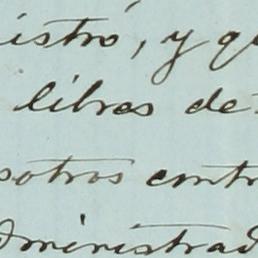 istró, y qu
libras de
sotros contr
dministrad